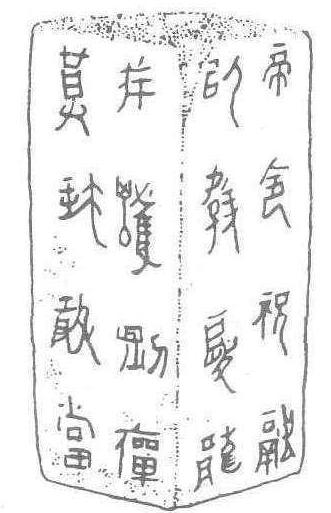 帝令祝融
以教夔龍
庶蠖剛癉
莫我敢當